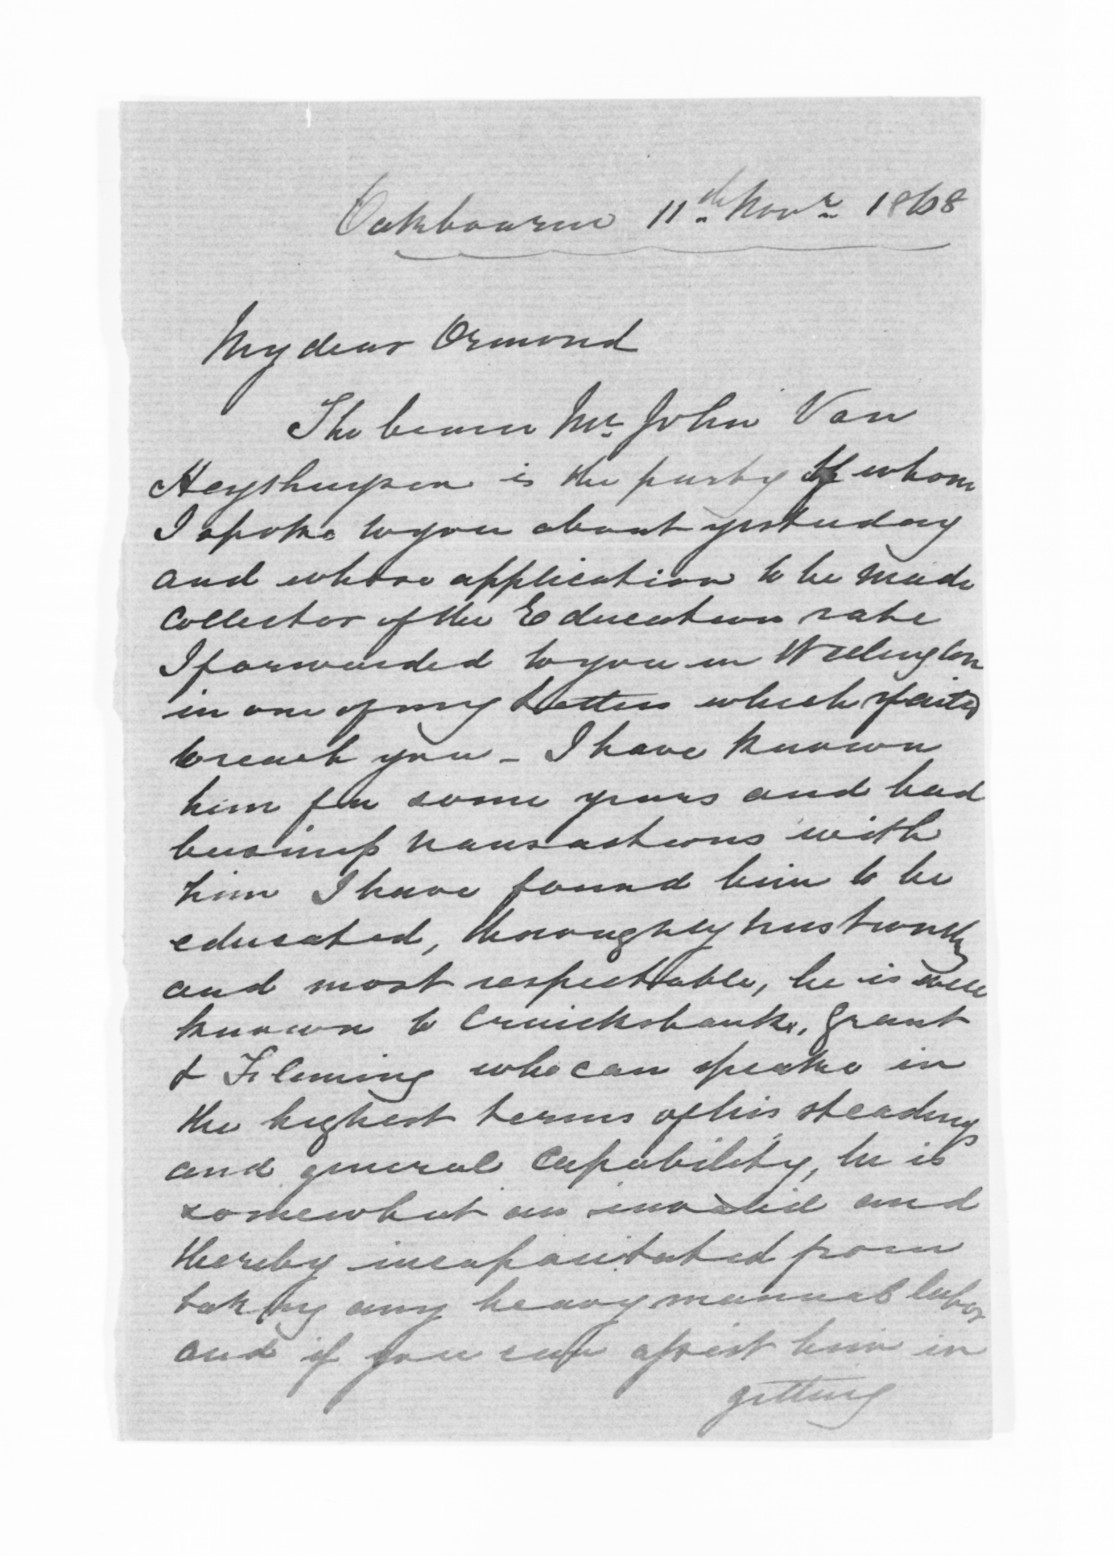 Oakbourne 11th Novr 1868
My dear Ormond
The bearer Mr John Van
Heythuysen is the party of whom
I spoke to you about yesterday
and whose application to be made
collector of the Education rate
I forwarded to you in Wellington
in one of my letters which failed
to reach you - I have known
him for some years and had
business transactions with
him I have found him to be
educated, thoroughly trustworthy
and most respectable, he is well
known to Cruickshank, Grant
& Fleming who can speake in
the highest terms of his steadiness
and general capability, he is
somewhat an invalid and
thereby incapacitated from
taking any heavy manual labor
and if you can assist him in
getting